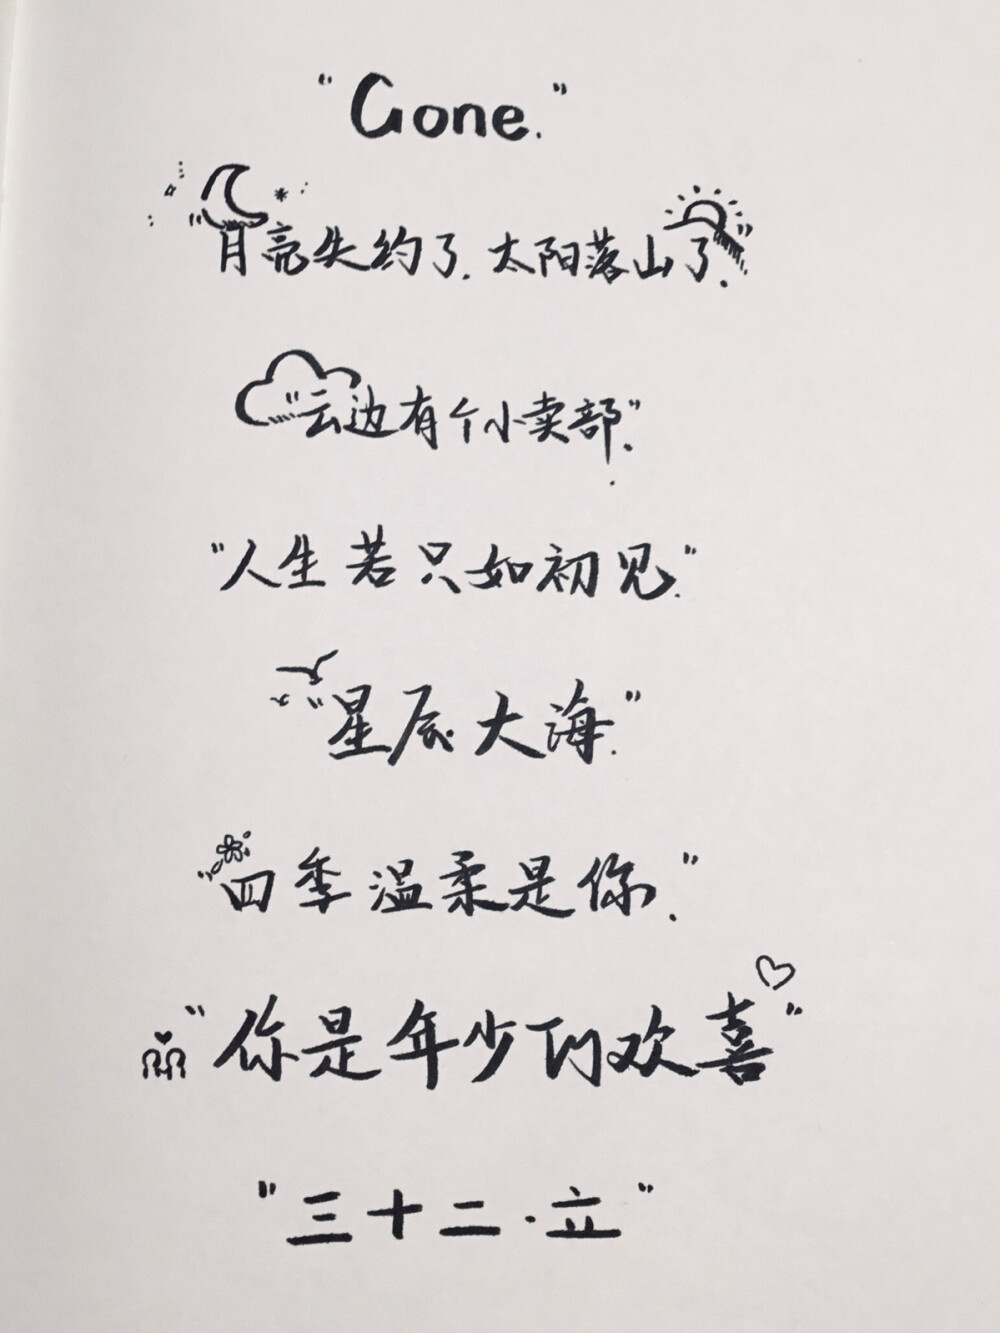 "Gone."
"月亮失约了.太阳落山了."
"云边有个小卖部."
"人生若只如初见."
"星辰大海."
"四季温柔是你."
"你是年少的欢喜"
"三十二·立"